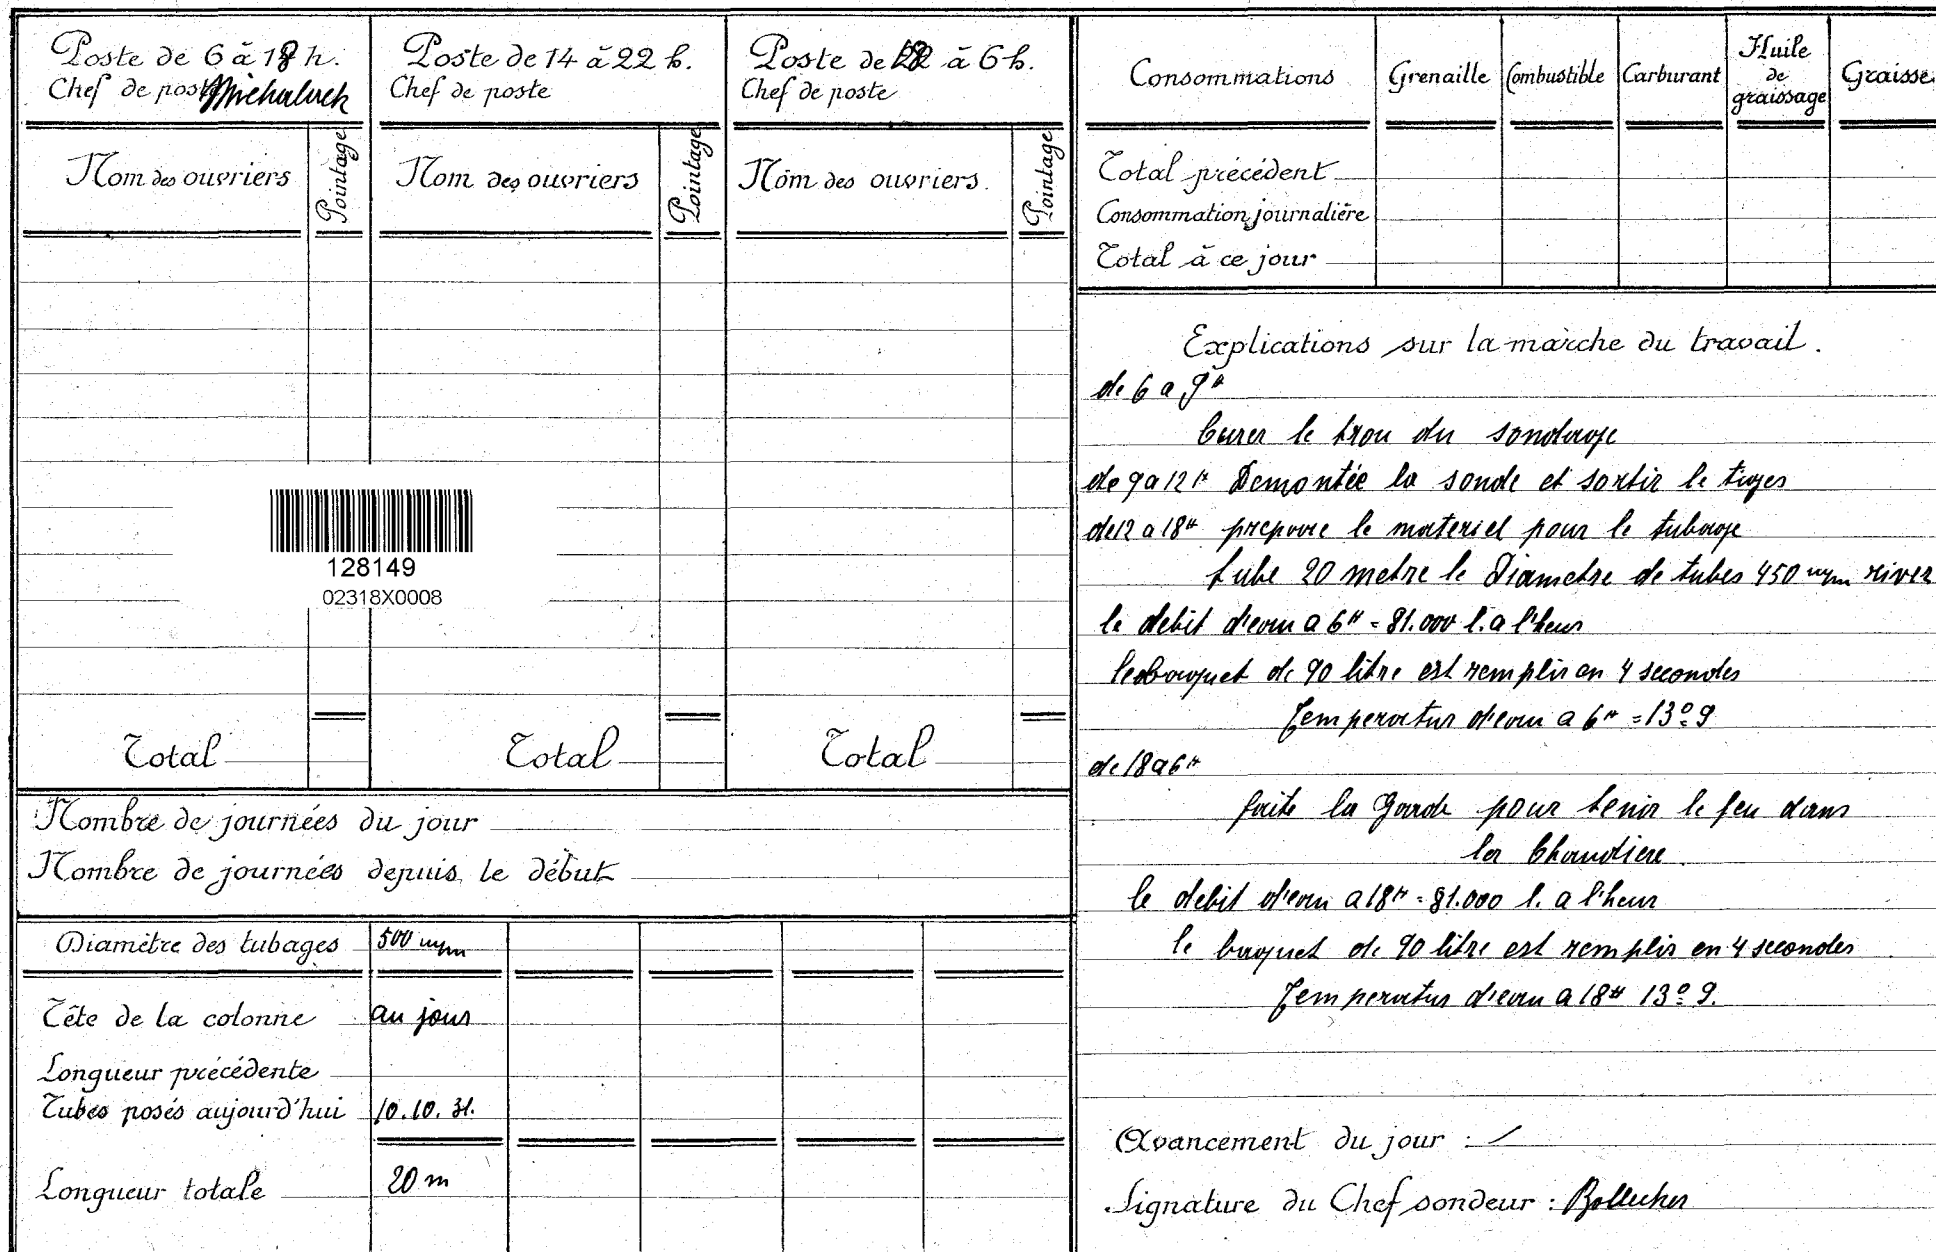 Poste de 6 à 18 h.
Chef de poste Michaluck
Nom des ouvriers
Pointage
Total
Poste de 14 à 22 h.
Chef de poste
Nom des ouvriers
Pointage
Total
Poste de 18 à 6 h.
Chef de poste
Nom des ouvriers.
Pointage
Total
128149
02318X0008
Nombre de journées du jour
Nombre de journées depuis le début
Diamètre des tubages 500 m/m
Tête de la colonne au jour
Longueur précédente
Tubes posés aujourd'hui 10.10.31.
Longueur totale 20 m
Consommations Grenaille Combustible Carburant Huile de graissage Graisse
Total précédent
Consommation journalière
Total à ce jour
Explications sur la marche du travail.
de 6 a 9 h
Curer le trou du sondage
de 9 a 12 h Demontée la sonde et sortir le tiges
de 12 a 18 h prepare le materiel pour le tubage
tube 20 metre le Diametre de tubes 450 m/m river
le debit d'eau a 6 h = 81.000 l. a l'heur
le baquet de 90 litre est remplir en 4 secondes
Temperatur d'eau a 6 h = 13° 9
de 18 a 6 h
faite la Garde pour tenir le feu dans
la Chaudiere.
le debit d'eau a 18 h = 81.000 l. a l'heur
le baquet de 90 litre est remplir en 4 secondes
Temperatur d'eau a 18 h 13° 9.
Avancement du jour : /
Signature du Chef sondeur :